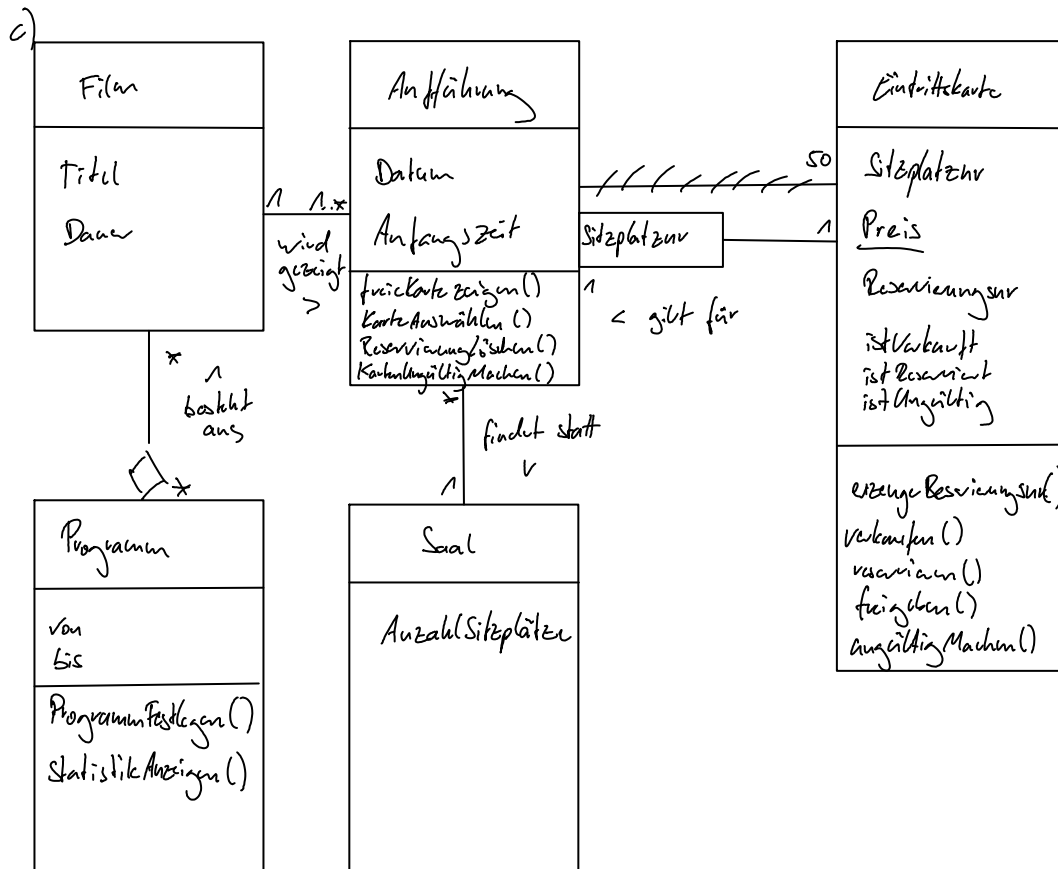 c)
Film
Titel
Dauer
1
1..*
wird
gezeigt
>
Aufführung
Datum
Anfangszeit
freieKartezeigen()
KarteAuswählen()
Reservierunglöschen()
KartenUngültigMachen()
Sitzplatznr
50
1
1
< gilt für
Eintrittskarte
Sitzplatznr
Preis
Reservierungsnr
istVerkauft
istReserviert
istUngültig
erzengeReservierungsnr()
verkaufen()
reservieren()
freigeben()
ungültigMachen()
*
besteht
aus
*
Programm
von
bis
ProgrammFestlegen()
StatistikAnzeigen()
*
findet statt
v
1
Saal
AnzahlSitzplätze